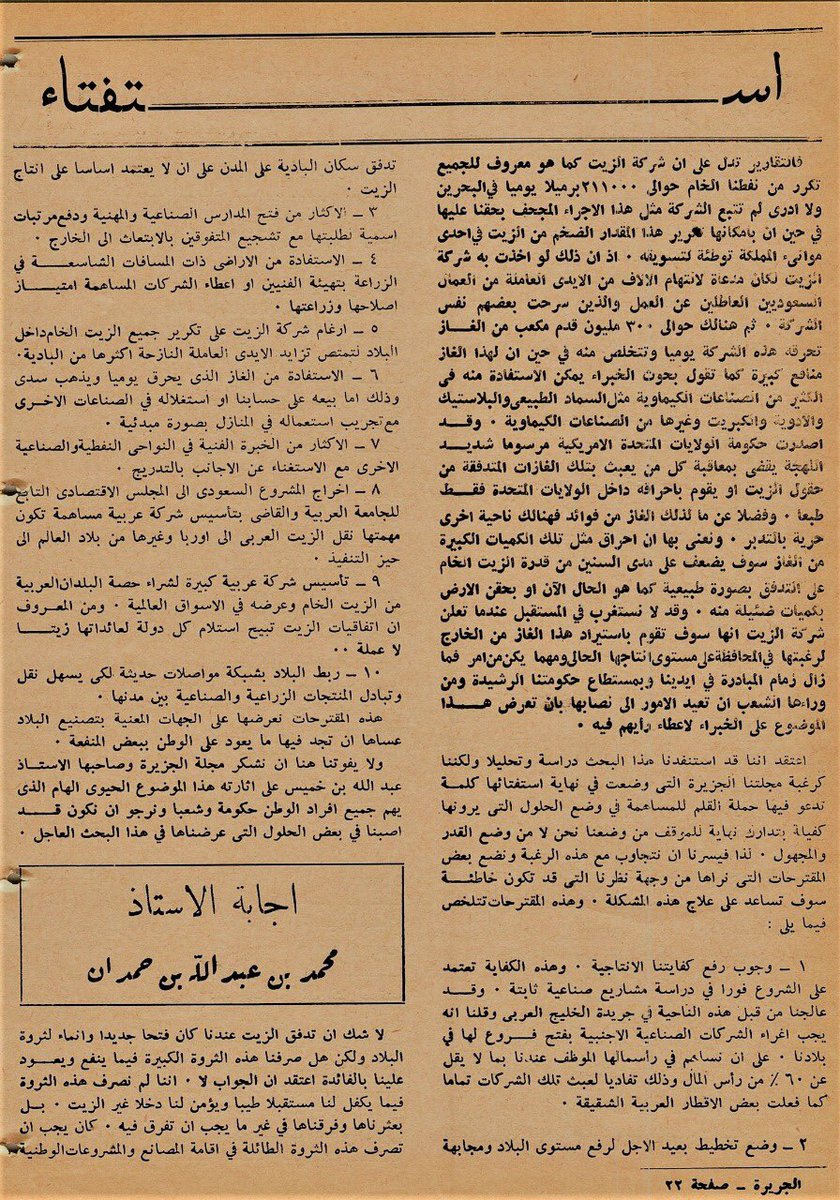 استفتاء
فالتقارير تدل على ان شركة الزيت كما هو معروف للجميع
تكرر من نفطنا الخام حوالى ٢١١٠٠٠ برميلا يوميا في البحرين
ولا ادرى لم تتبع الشركة مثل هذا الاجراء المجحف بحقنا عليها
في حين ان بامكانها تكرير هذا المقدار الضخم من الزيت في احدى
موانىء المملكة توطئة لتسويقه ٠ اذ ان ذلك لو اخذت به شركة
الزيت لكان مدعاة لالتهام الآلاف من الايدى العاملة من العمال
السعوديين العاطلين عن العمل والذين سرحت بعضهم نفس
الشركة ٠ ثم هنالك حوالى ٣٠٠ مليون قدم مكعب من الغــاز
تحرقه هذه الشركة يوميا وتتخلص منه في حين ان لهذا الغاز
منافع كبيرة كما تقول بحوث الخبراء يمكن الاستفادة منه فى
الكثير من الصناعات الكيماوية مثل السماد الطبيعى والبلاستيك
والادوية والكبريت وغيرها من الصناعات الكيماوية ٠ وقــد
اصدرت حكومة الولايات المتحدة الامريكية مرسوما شديــد
اللهجة يقضى بمعاقبة كل من يعبث بتلك الغازات المتدفقة من
حقول الزيت او يقوم باحراقه داخل الولايات المتحدة فقــط
طبعا ٠ وفضلا عن ما لذلك الغاز من فوائد فهنالك ناحية اخرى
حرية بالتدبر ٠ ونعنى بها ان احراق مثل تلك الكميات الكبيرة
من الغاز سوف يضعف على مدى السنين من قدرة الزيت الخام
على التدفق بصورة طبيعية كما هو الحال الآن او بحقن الارض
بكميات ضئيلة منه ٠ وقد لا نستغرب في المستقبل عندما تعلن
شركة الزيت انها سوف تقوم باستيراد هذا الغاز من الخارج
لرغبتها في المحافظة على مستوى انتاجها الحالى ومهما يكن من امر فما
زال زمام المبادرة في ايدينا وبمستطاع حكومتنا الرشيدة ومن
وراءها الشعب ان تعيد الامور الى نصابها بان تعرض هــــذا
الموضوع على الخبراء لاعطاء رأيهم فيه ٠
اعتقد اننا قد استنفدنا هذا البحث دراسة وتحليلا ولكننا
كرغبة مجلتنا الجزيرة التى وضعت في نهاية استفتائها كلمة
تدعو فيها حملة القلم للمساهمة في وضع الحلول التى يرونها
كفيلة بتدارك نهاية للموقف من وضعنا نحن لا من وضع القدر
والمجهول ٠ لذا فيسرنا ان نتجاوب مع هذه الرغبة ونضع بعض
المقترحات التى نراها من وجهة نظرنا التى قد تكون خاطئــة
سوف تساعد على علاج هذه المشكلة ٠ وهذه المقترحات تتلخص
فيما يلى :
١ ــ وجوب رفع كفايتنا الانتاجية ٠ وهذه الكفاية تعتمد
على الشروع فورا في دراسة مشاريع صناعية ثابتة ٠ وقــد
عالجنا من قبل هذه الناحية في جريدة الخليج العربى وقلنا انه
يجب اغراء الشركات الصناعية الاجنبية بفتح فــروع لها في
بلادنا ٠ على ان نساهم في رأسمالها الموظف عندنا بما لا يقل
عن ٦٠ ٪ من رأس المال وذلك تفاديا لعبث تلك الشركات تماما
كما فعلت بعض الاقطار العربية الشقيقة ٠
٢ ــ وضع تخطيط بعيد الاجل لرفع مستوى البلاد ومجابهة
تدفق سكان البادية على المدن على ان لا يعتمد اساسا على انتاج
الزيت ٠
٣ ــ الاكثار من فتح المدارس الصناعية والمهنية ودفع مرتبات
اسمية لطلبتها مع تشجيع المتفوقين بالابتعاث الى الخارج ٠
٤ ــ الاستفادة من الاراضى ذات المسافات الشاسعــة في
الزراعة بتهيئة الفنيين او اعطاء الشركات المساهمة امتيــاز
اصلاحها وزراعتها ٠
٥ ــ ارغام شركة الزيت على تكرير جميع الزيت الخام داخل
البلاد لتمتص تزايد الايدى العاملة النازحة اكثرها من البادية ٠
٦ ــ الاستفادة من الغاز الذى يحرق يوميا ويذهب سدى
وذلك اما ببيعه على حسابنا او استغلاله في الصناعات الاخرى
مع تجريب استعماله في المنازل بصورة مبدئية ٠
٧ ــ الاكثار من الخبرة الفنية في النواحى النفطية والصناعية
الاخرى مع الاستغناء عن الاجانب بالتدريج ٠
٨ ــ اخراج المشروع السعودى الى المجلس الاقتصادى التابع
للجامعة العربية والقاضى بتأسيس شركة عربية مساهمة تكون
مهمتها نقل الزيت العربى الى اوربا وغيرها من بلاد العالم الى
حيز التنفيذ ٠
٩ ــ تأسيس شركة عربية كبيرة لشراء حصة البلدان العربية
من الزيت الخام وعرضه في الاسواق العالمية ٠ ومن المعــروف
ان اتفاقيات الزيت تبيح استلام كل دولة لعائداتها زيتــا
لا عملة ٠٠
١٠ ــ ربط البلاد بشبكة مواصلات حديثة لكى يسهل نقل
وتبادل المنتجات الزراعية والصناعية بين مدنها ٠
هذه المقترحات نعرضها على الجهات المعنية بتصنيع البلاد
عساها ان تجد فيها ما يعود على الوطن ببعض المنفعة ٠
ولا يفوتنا هنا ان نشكر مجلة الجزيرة وصاحبها الاستــاذ
عبد الله بن خميس على اثارته هذا الموضوع الحيوى الهام الذى
يهم جميع افراد الوطن حكومة وشعبا ونرجو ان نكون قــد
اصبنا في بعض الحلول التى عرضناها في هذا البحث العاجل ٠
اجابة الاستاذ
محمد بن عبد الله بن حمدان
لا شك ان تدفق الزيت عندنا كان فتحا جديدا وانماء لثروة
البلاد ولكن هل صرفنا هذه الثروة الكبيرة فيما ينفع ويعــود
علينا بالفائدة اعتقد ان الجواب لا ٠ اننا لم نصرف هذه الثروة
فيما يكفل لنا مستقبلا طيبا ويؤمن لنا دخلا غير الزيت ٠ بــل
بعثرناها وفرقناها في غير ما يجب ان تفرق فيه ٠ كان يجب ان
تصرف هذه الثروة الطائلة في اقامة المصانع والمشروعات الوطنية
الجريرة ــ صفحة ٢٢